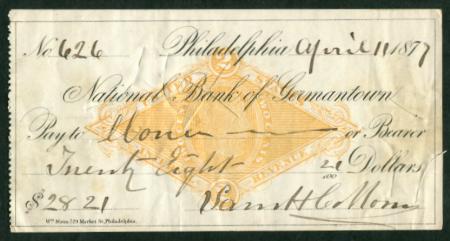 No. 626 Philadelphia April 11 1877
National Bank of Germantown
Pay to or Bearer
Twenty Eight 21/100 Dollars
$28 21
Wm Mann 529 Market St. Philadelphia.